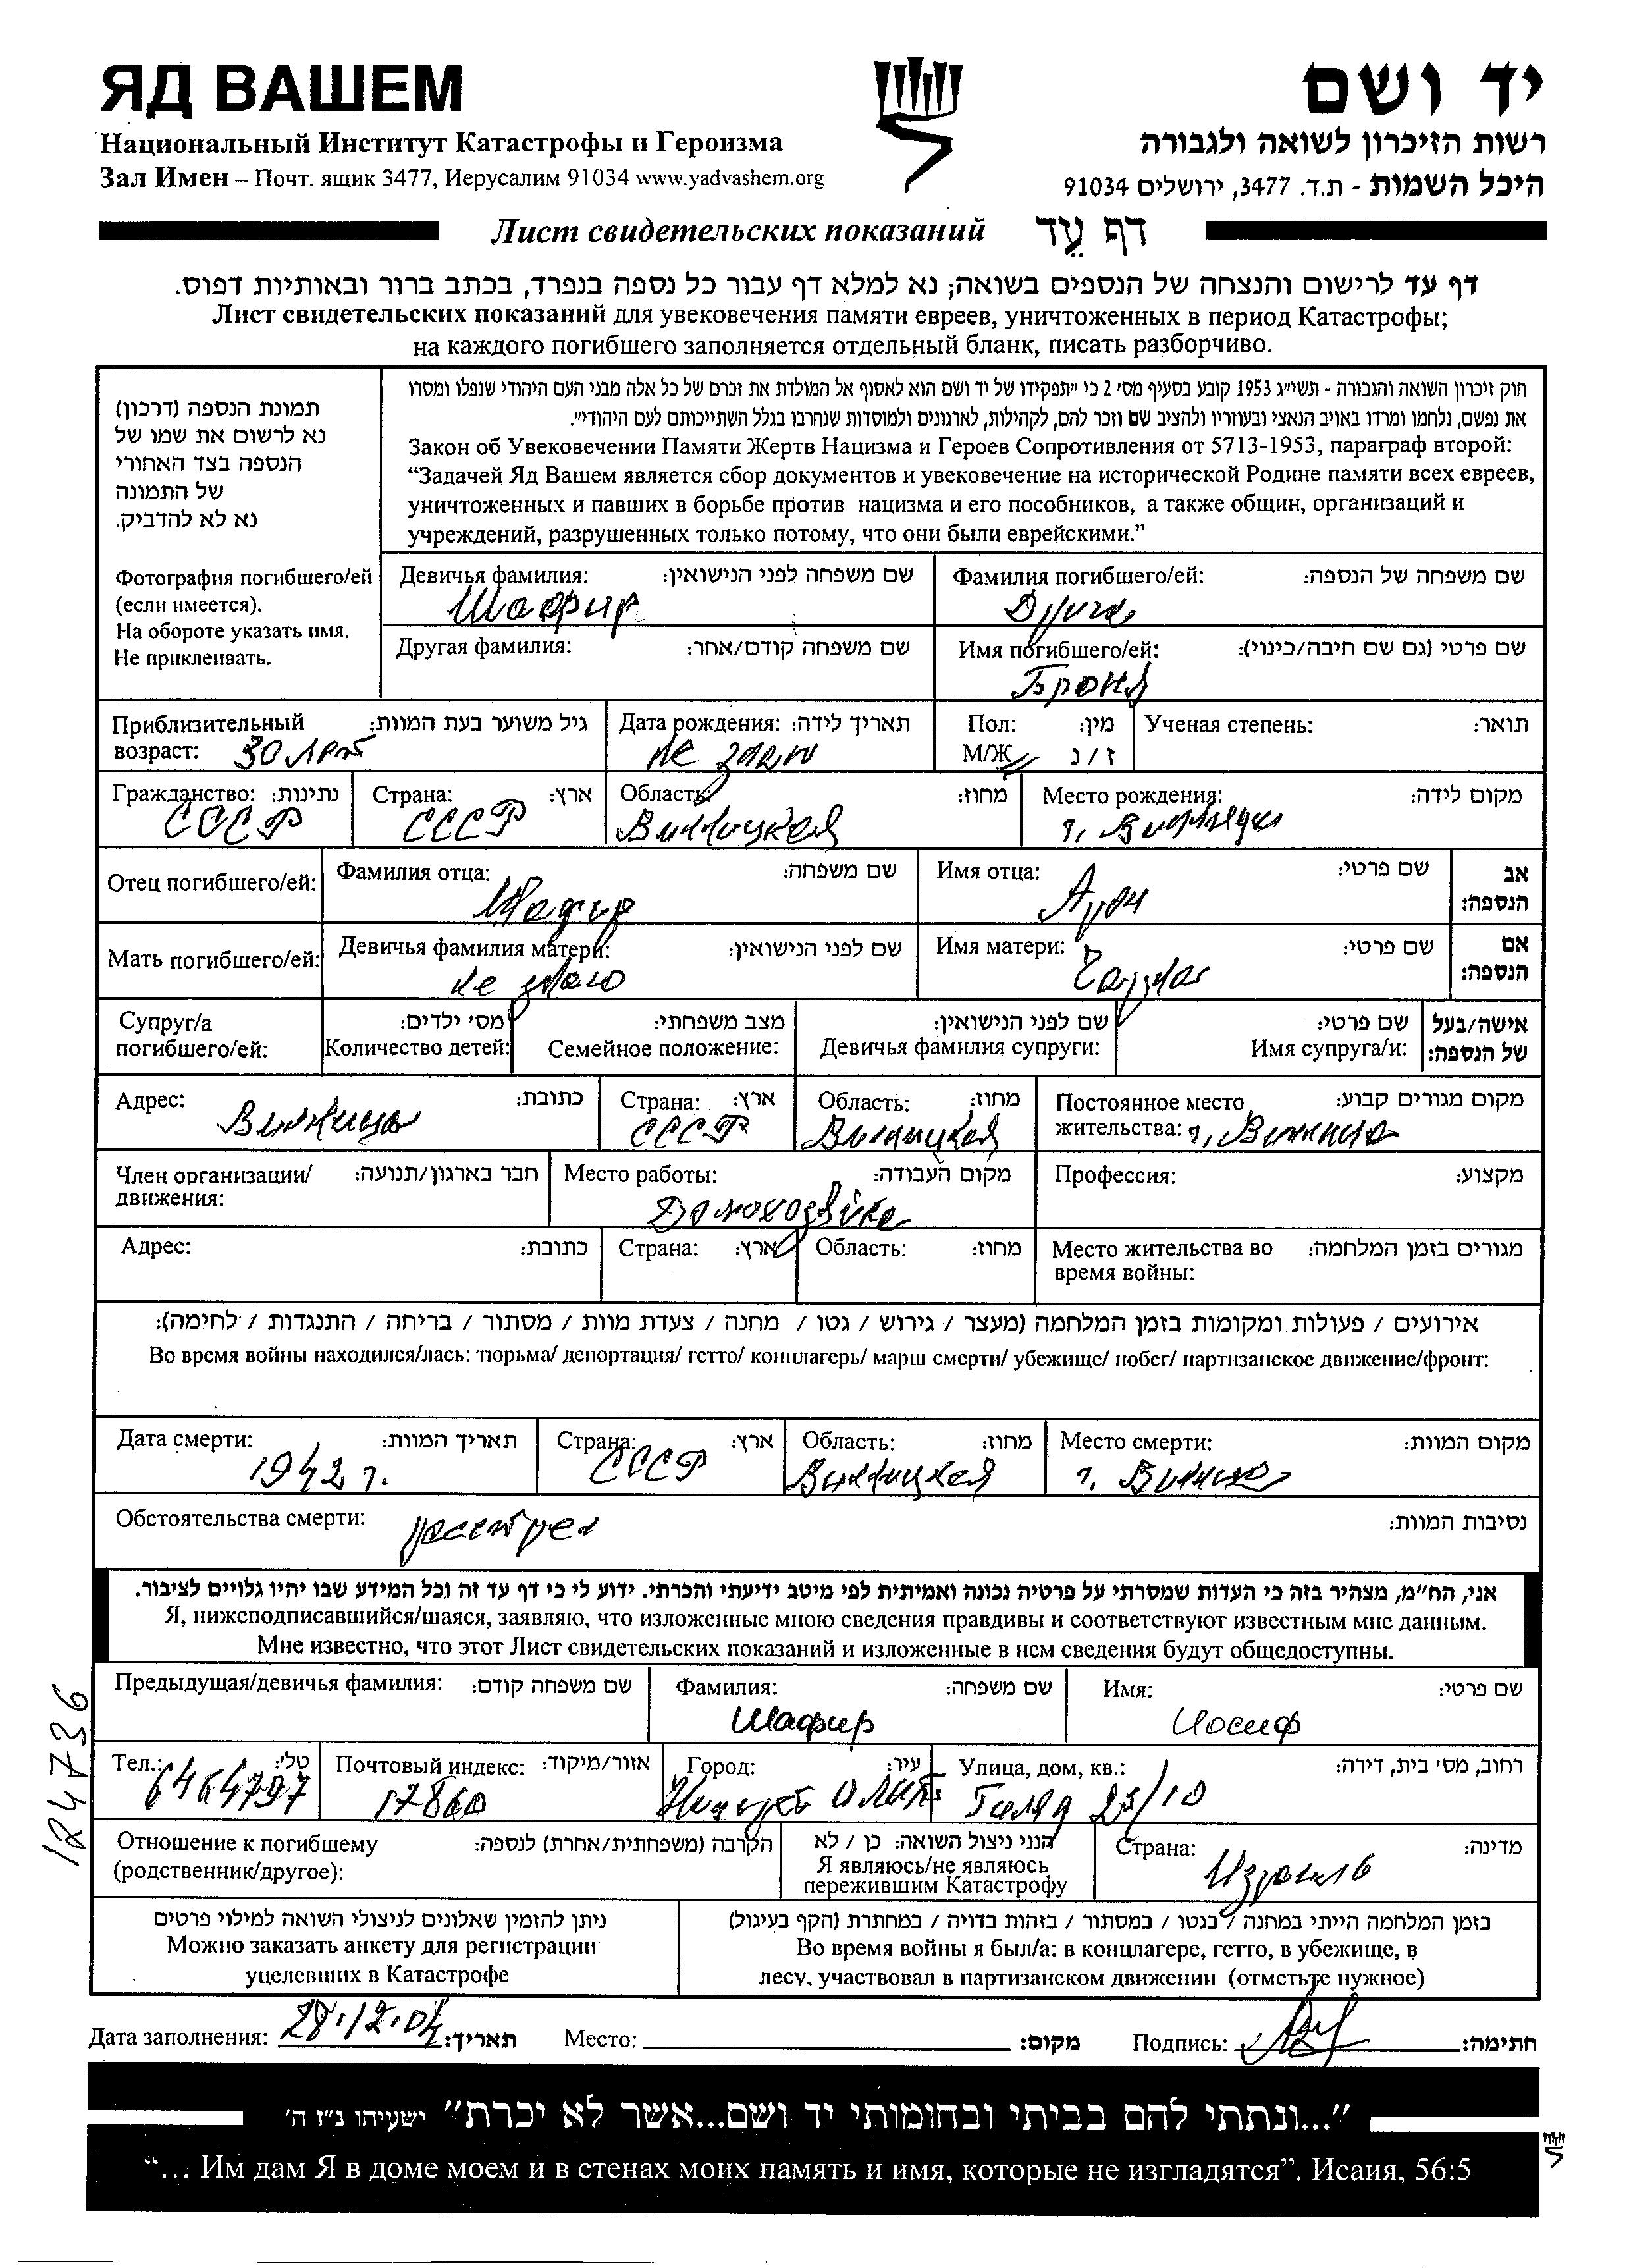 ЯД ВАШЕМ
Национальный Институт Катастрофы и Героизма
Зал Имен – Почт. ящик 3477, Иерусалим 91034 www.yadvashem.org
יד ושם
רשות הזיכרון לשואה ולגבורה
היכל השמות - ת.ד. 3477, ירושלים 91034
Лист свидетельских показаний דף עֵד
דף עד לרישום והנצחה של הנספים בשואה; נא למלא דף עבור כל נספה בנפרד, בכתב ברור ובאותיות דפוס.
Лист свидетельских показаний для увековечения памяти евреев, уничтоженных в период Катастрофы;
на каждого погибшего заполняется отдельный бланк, писать разборчиво.
תמונת הנספה (דרכון)
נא לרשום את שמו של
הנספה בצד האחורי
של התמונה
נא לא להדביק.
Фотография погибшего/ей
(если имеется).
На обороте указать имя.
Не приклеивать.
חוק זיכרון השואה והגבורה - תשי״ג 1953 קובע בסעיף מס׳ 2 כי ״תפקידו של יד ושם הוא לאסוף אל המולדת את זכרם של כל אלה מבני העם היהודי שנפלו ומסרו
את נפשם, נלחמו ומרדו באויב הנאצי ובעוזריו ולהציב שם וזכר להם, לקהילות, לארגונים ולמוסדות שנחרבו בגלל השתייכותם לעם היהודי״.
Закон об Увековечении Памяти Жертв Нацизма и Героев Сопротивления от 5713-1953, параграф второй:
“Задачей Яд Вашем является сбор документов и увековечение на исторической Родине памяти всех евреев,
уничтоженных и павших в борьбе против нацизма и его пособников, а также общин, организаций и
учреждений, разрушенных только потому, что они были еврейскими.”
Девичья фамилия: שם משפחה לפני הנישואין: Фамилия погибшего/ей: שם משפחה של הנספה:
Шафир
Другая фамилия: שם משפחה קודם/אחר: Имя погибшего/ей: שם פרטי (גם שם חיבה/כינוי):
Броня
Приблизительный גיל משוער בעת המוות: Дата рождения: תאריך לידה: Пол: מין: Ученая степень: תואר:
возраст: 30 лет не знаю М/Ж ז / נ
Гражданство: נתינות: Страна: ארץ: Область: מחוז: Место рождения: מקום לידה:
СССР СССР Винницкая г. Винница
Отец погибшего/ей: Фамилия отца: שם משפחה: Имя отца: שם פרטי: אב
הנספה:
Шафир Арон
Мать погибшего/ей: Девичья фамилия матери: שם לפני הנישואין: Имя матери: שם פרטי: אם
הנספה:
не знаю
Супруг/а מס׳ ילדים: מצב משפחתי: שם לפני הנישואין: שם פרטי: אישה/בעל
погибшего/ей: Количество детей: Семейное положение: Девичья фамилия супруги: Имя супруга/и: של הנספה:
Адрес: כתובת: Страна: ארץ: Область: מחוז: Постоянное место מקום מגורים קבוע:
Винница СССР Винницкая жительства: г. Винница
Член организации/ חבר בארגון/תנועה: Место работы: מקום העבודה: Профессия: מקצוע:
движения:
Домохозяйка
Адрес: כתובת: Страна: ארץ: Область: מחוז: Место жительства во מגורים בזמן המלחמה:
время войны:
אירועים / פעולות ומקומות בזמן המלחמה (מעצר / גירוש / גטו / מחנה / צעדת מוות / מסתור / בריחה / התנגדות / לחימה):
Во время войны находился/лась: тюрьма/ депортация/ гетто/ концлагерь/ марш смерти/ убежище/ побег/ партизанское движение/фронт:
Дата смерти: תאריך המוות: Страна: ארץ: Область: מחוז: Место смерти: מקום המוות:
1942 г. СССР Винницкая г. Винница
Обстоятельства смерти: расстрел נסיבות המוות:
אני, הח״מ, מצהיר בזה כי העדות שמסרתי על פרטיה נכונה ואמיתית לפי מיטב ידיעתי והכרתי. ידוע לי כי דף עד זה וכל המידע שבו יהיו גלויים לציבור.
Я, нижеподписавшийся/шаяся, заявляю, что изложенные мною сведения правдивы и соответствуют известным мне данным.
Мне известно, что этот Лист свидетельских показаний и изложенные в нем сведения будут общедоступны.
Предыдущая/девичья фамилия: שם משפחה קודם: Фамилия: שם משפחה: Имя: שם פרטי:
Шафир Иосиф
Тел.: טל׳: Почтовый индекс: אזור/מיקוד: Город: עיר: Улица, дом, кв.: רחוב, מס׳ בית, דירה:
6464797 17860 Нацерет Илит Гилад 23/10
Отношение к погибшему הקרבה (משפחתית/אחרת) לנספה: הנני ניצול השואה: כן / לא Страна: מדינה:
(родственник/другое): Я являюсь/не являюсь
пережившим Катастрофу Израиль
ניתן להזמין שאלונים לניצולי השואה למילוי פרטים
Можно заказать анкету для регистрации
уцелевших в Катастрофе
בזמן המלחמה הייתי במחנה / בגטו / במסתור / בזהות בדויה / במחתרת (הקף בעיגול)
Во время войны я был/а: в концлагере, гетто, в убежище, в
лесу, участвовал в партизанском движении (отметьте нужное)
Дата заполнения: 28.12.04 תאריך: Место: מקום: Подпись: חתימה:
124736
״...ונתתי להם בביתי ובחומותי יד ושם...אשר לא יכרת״ ישעיהו נ״ו ה׳
“... Им дам Я в доме моем и в стенах моих память и имя, которые не изгладятся”. Исаия, 56:5